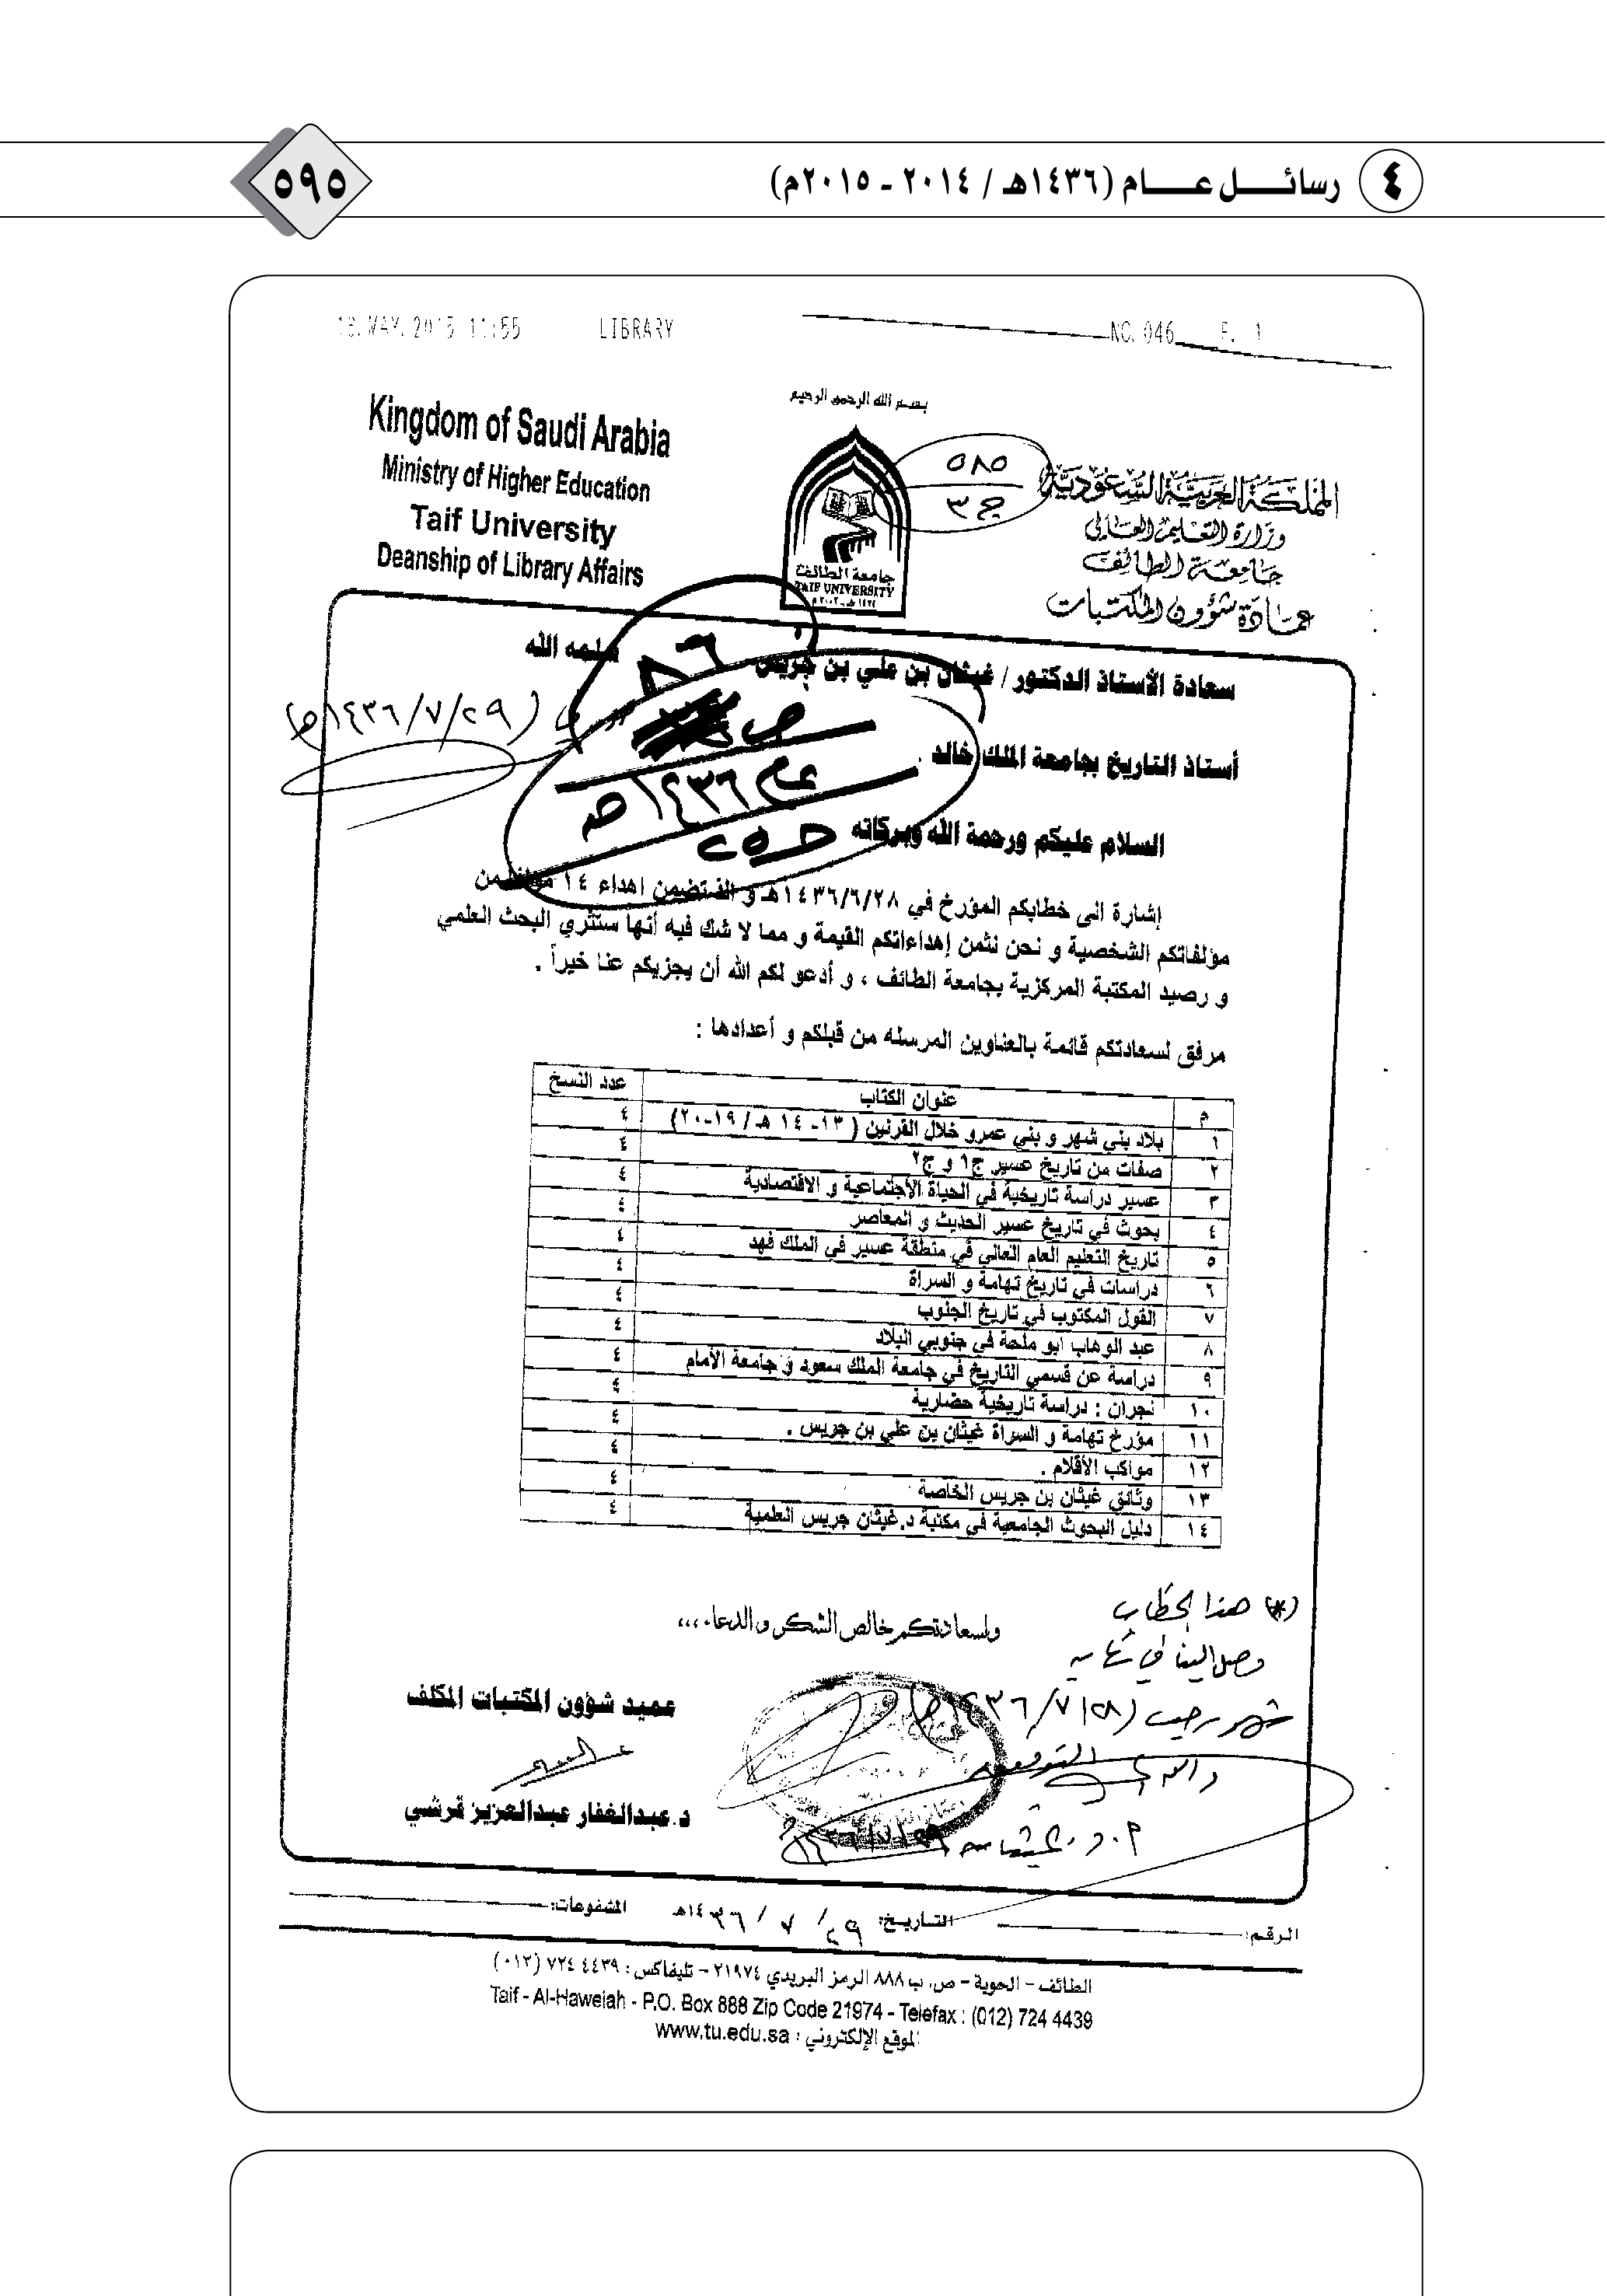 ٤ رسائل عام (١٤٣٦هـ / ٢٠١٤ - ٢٠١٥م)
٥٩٥
MAY. 2015 11:55 LIBRARY NO. 046 P. 1
بسم الله الرحمن الرحيم
Kingdom of Saudi Arabia
Ministry of Higher Education
Taif University
Deanship of Library Affairs
جامعة الطائف
TAIF UNIVERSITY
٥٨٥
ج ٣
المملكة العربية السعودية
وزارة التعليم العالي
جامعة الطائف
عمادة شؤون المكتبات
سعادة الأستاذ الدكتور / غيثان بن علي بن جريس سلمه الله
٨٦
ص
عام ١٤٣٦هـ
(١٤٣٦/٧/٢٩هـ)
أستاذ التاريخ بجامعة الملك خالد .
السلام عليكم ورحمة الله وبركاته
إشارة الى خطابكم المؤرخ في ١٤٣٦/٦/٢٨هـ و المتضمن اهداء ١٤ مؤلفا من
مؤلفاتكم الشخصية و نحن نثمن إهداءاتكم القيمة و مما لا شك فيه أنها ستثري البحث العلمي
و رصيد المكتبة المركزية بجامعة الطائف ، و أدعو لكم الله أن يجزيكم عنا خيراً .
مرفق لسعادتكم قائمة بالعناوين المرسله من قبلكم و أعدادها :
م عنوان الكتاب عدد النسخ
١ بلاد بني شهر و بني عمرو خلال القرنين ( ١٣- ١٤ هـ / ١٩-٢٠) ٤
٢ صفات من تاريخ عسير ج١ و ج٢ ٤
٣ عسير دراسة تاريخية في الحياة الأجتماعية و الاقتصادية ٤
٤ بحوث في تاريخ عسير الحديث و المعاصر ٤
٥ تاريخ التعليم العام العالي في منطقة عسير في الملك فهد ٤
٦ دراسات في تاريخ تهامة و السراة ٤
٧ القول المكتوب في تاريخ الجنوب ٤
٨ عبد الوهاب ابو ملحة في جنوبي البلاد ٤
٩ دراسة عن قسمي التاريخ في جامعة الملك سعود و جامعة الأمام ٤
١٠ نجران : دراسة تاريخية حضارية ٤
١١ مؤرخ تهامة و السراة غيثان بن علي بن جريس . ٤
١٢ مواكب الأقلام . ٤
١٣ وثائق غيثان بن جريس الخاصة ٤
١٤ دليل البحوث الجامعية في مكتبة د.غيثان جريس العلمية ٤
ولسعادتكم خالص الشكر و الدعاء ،،،،
(*) هذا الخطاب
وصل الينا في
شهر رجب (١٤٣٦/٧/٢٨هـ)
والله
١٤٣٦/٧/٢٩
عميد شؤون المكتبات المكلف
د. عبدالغفار عبدالعزيز قرشي
الرقم: التاريخ: ٢٩ / ٧ / ١٤٣٦هـ المشفوعات:
الطائف – الحوية – ص. ب ٨٨٨ الرمز البريدي ٢١٩٧٤ – تليفاكس : ٤٤٣٩ ٧٢٤ (٠١٢)
Taif - Al-Haweiah - P.O. Box 888 Zip Code 21974 - Telefax : (012) 724 4439
الموقع الإلكتروني : www.tu.edu.sa